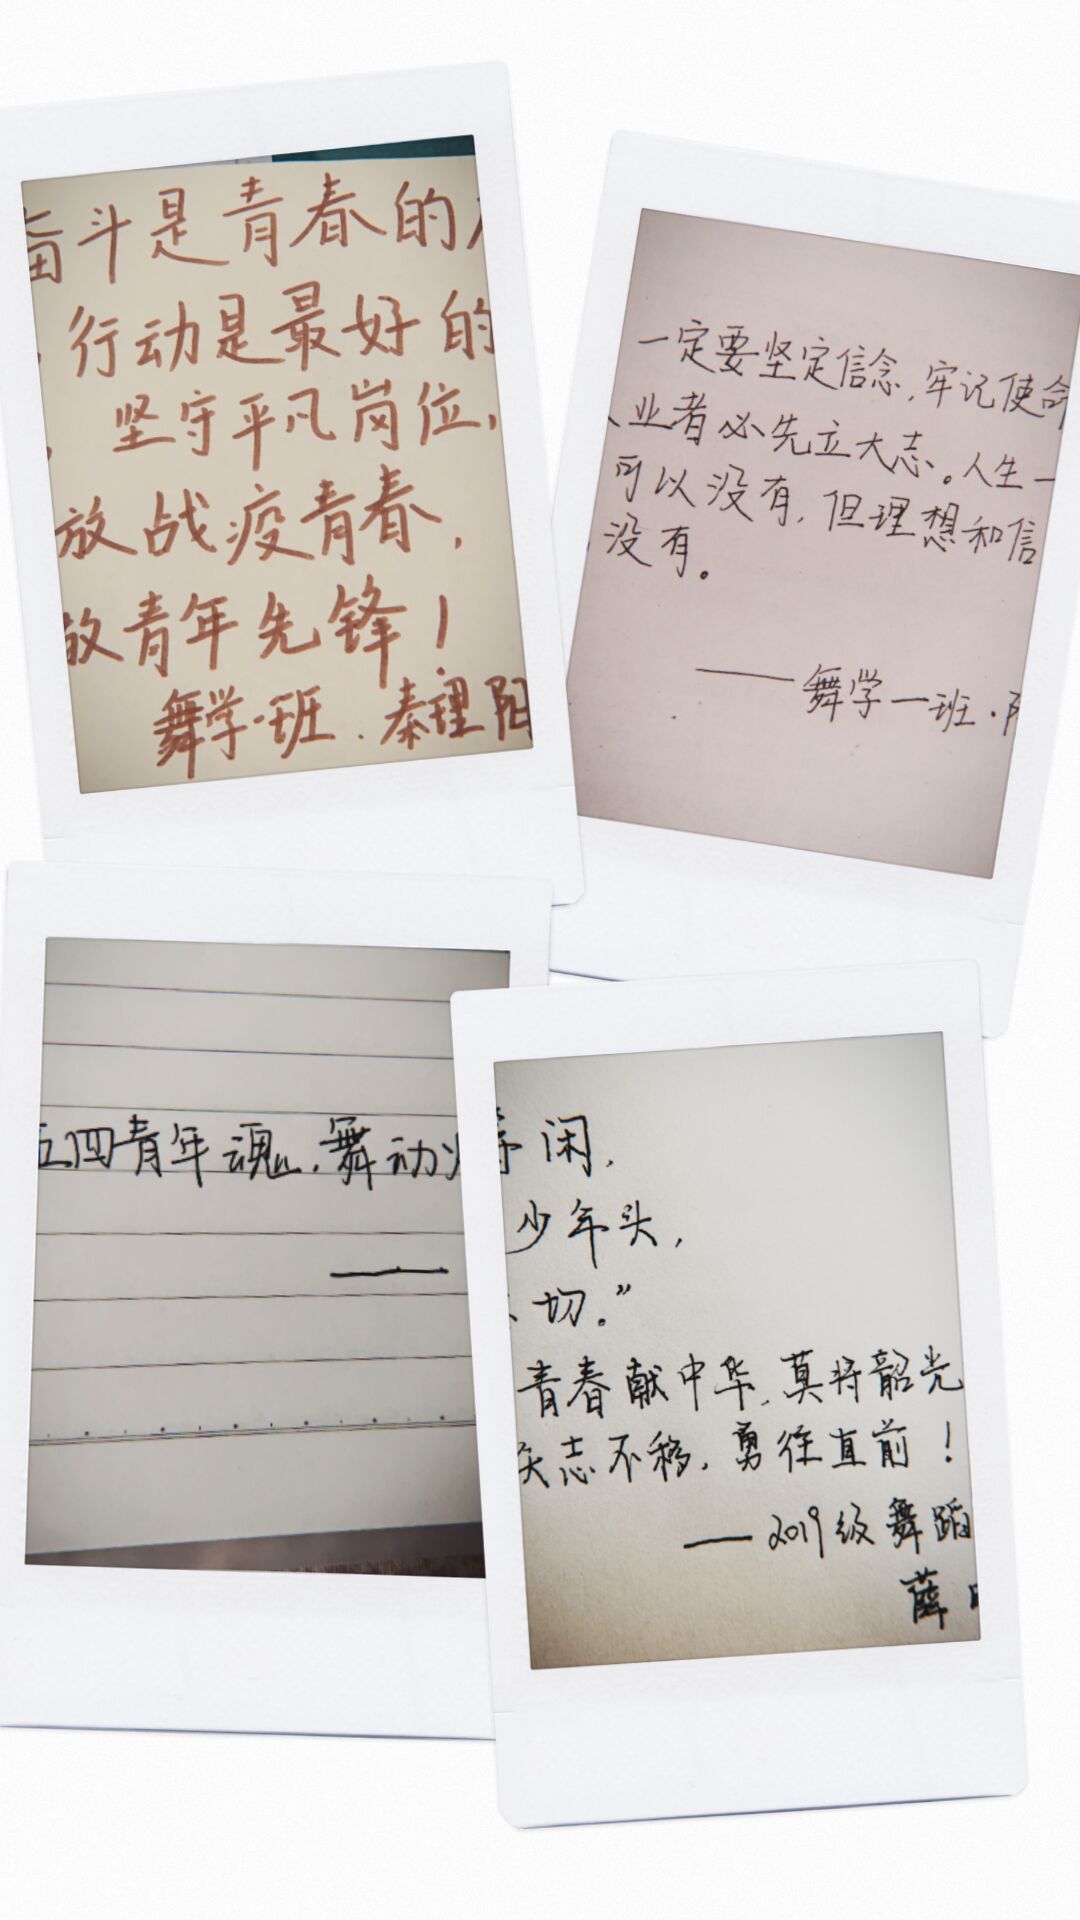 奋斗是青春的
行动是最好的
坚守平凡岗位,
放战疫青春,
放青年先锋!
舞学一班.秦理阳
一定要坚定信念,牢记使命
业者必先立大志。人生一
可以没有,但理想和信
没有。
——舞学一班·
五四青年魂,舞动
等闲,
少年头,
切。”
青春献中华,莫将韶光
矢志不移,勇往直前!
——2019级舞蹈
薛